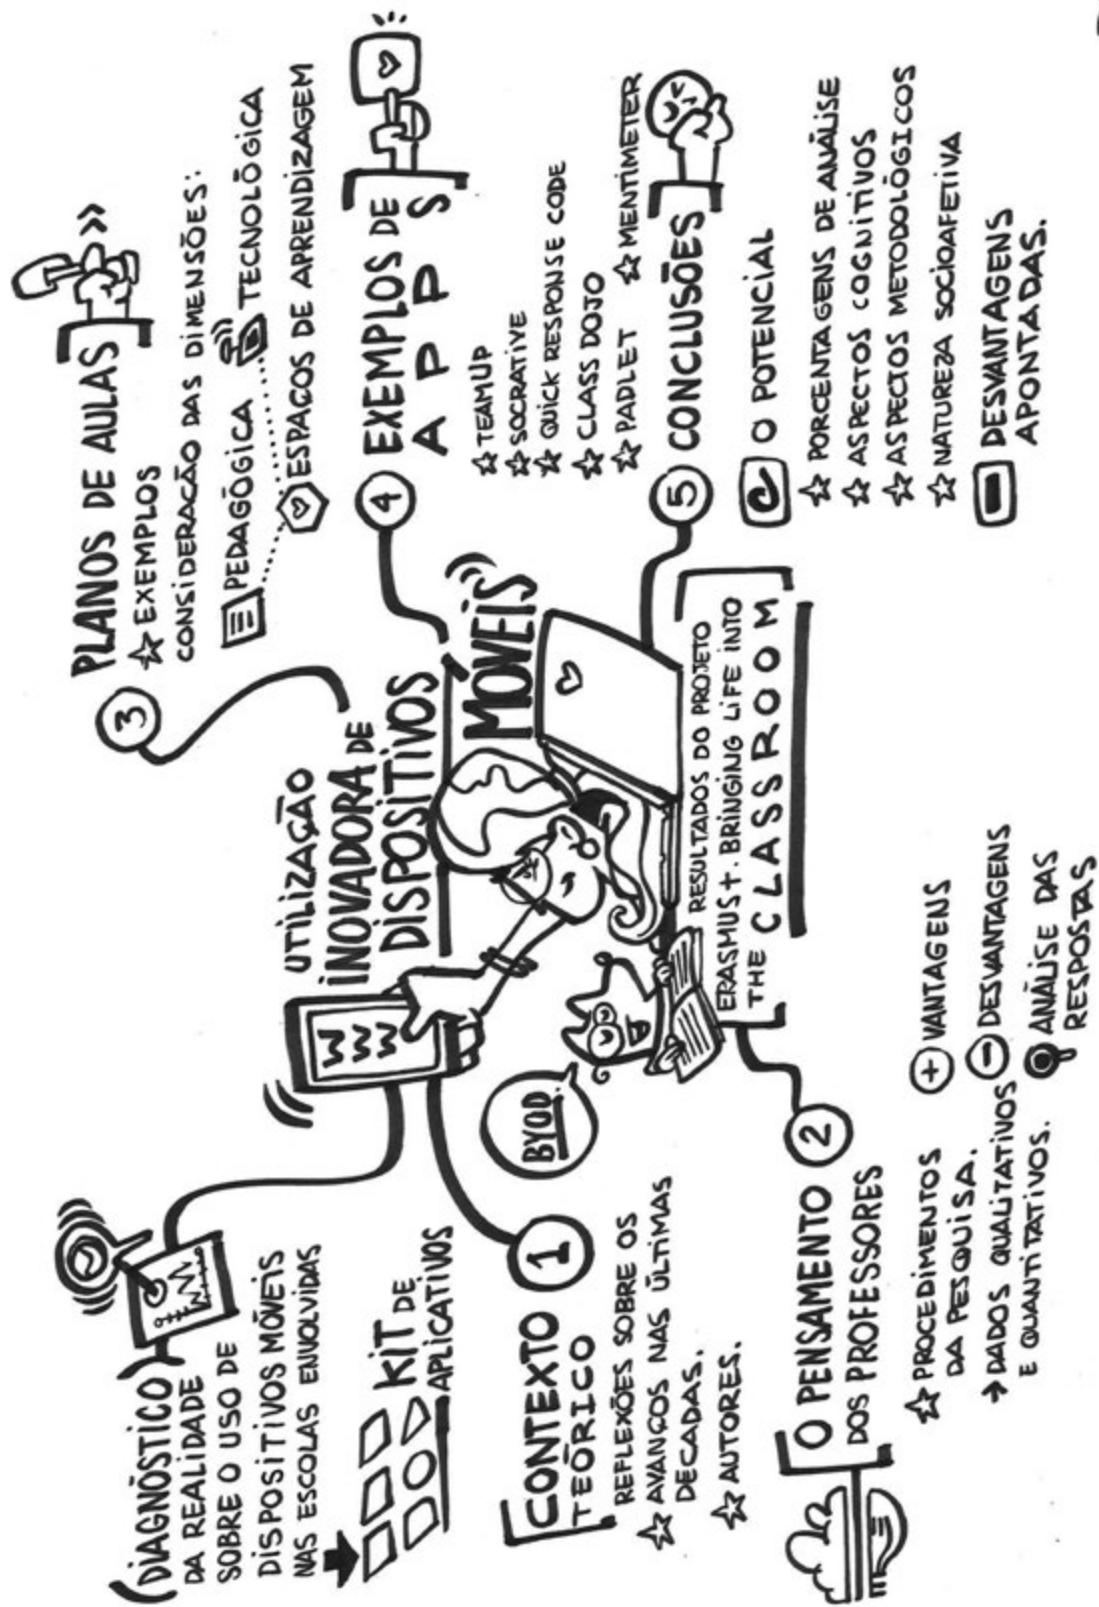 UTILIZAÇÃO
INOVADORA DE
DISPOSITIVOS
MÓVEIS
WWW
BYOD
RESULTADOS DO PROJETO
ERASMUS+. BRINGING LIFE INTO
THE CLASSROOM
(DIAGNÓSTICO)
DA REALIDADE
SOBRE O USO DE
DISPOSITIVOS MÓVEIS
NAS ESCOLAS ENVOLVIDAS
KIT DE
APLICATIVOS
1
CONTEXTO
TEÓRICO
REFLEXÕES SOBRE OS
AVANÇOS NAS ÚLTIMAS
DECADAS.
AUTORES.
2
O PENSAMENTO
DOS PROFESSORES
PROCEDIMENTOS
DA PESQUISA.
→ DADOS QUALITATIVOS
E QUANTITATIVOS.
+ VANTAGENS
- DESVANTAGENS
ANÁLISE DAS
RESPOSTAS
3
PLANOS DE AULAS
EXEMPLOS
CONSIDERAÇÃO DAS DIMENSÕES:
PEDAGÓGICA TECNOLÓGICA
ESPAÇOS DE APRENDIZAGEM
4
EXEMPLOS DE
APPS
TEAMUP
SOCRATIVE
QUICK RESPONSE CODE
CLASS DOJO
PADLET MENTIMETER
5
CONCLUSÕES
O POTENCIAL
PORCENTAGENS DE ANÁLISE
ASPECTOS COGNITIVOS
ASPECTOS METODOLÓGICOS
NATUREZA SOCIOAFETIVA
DESVANTAGENS
APONTADAS.